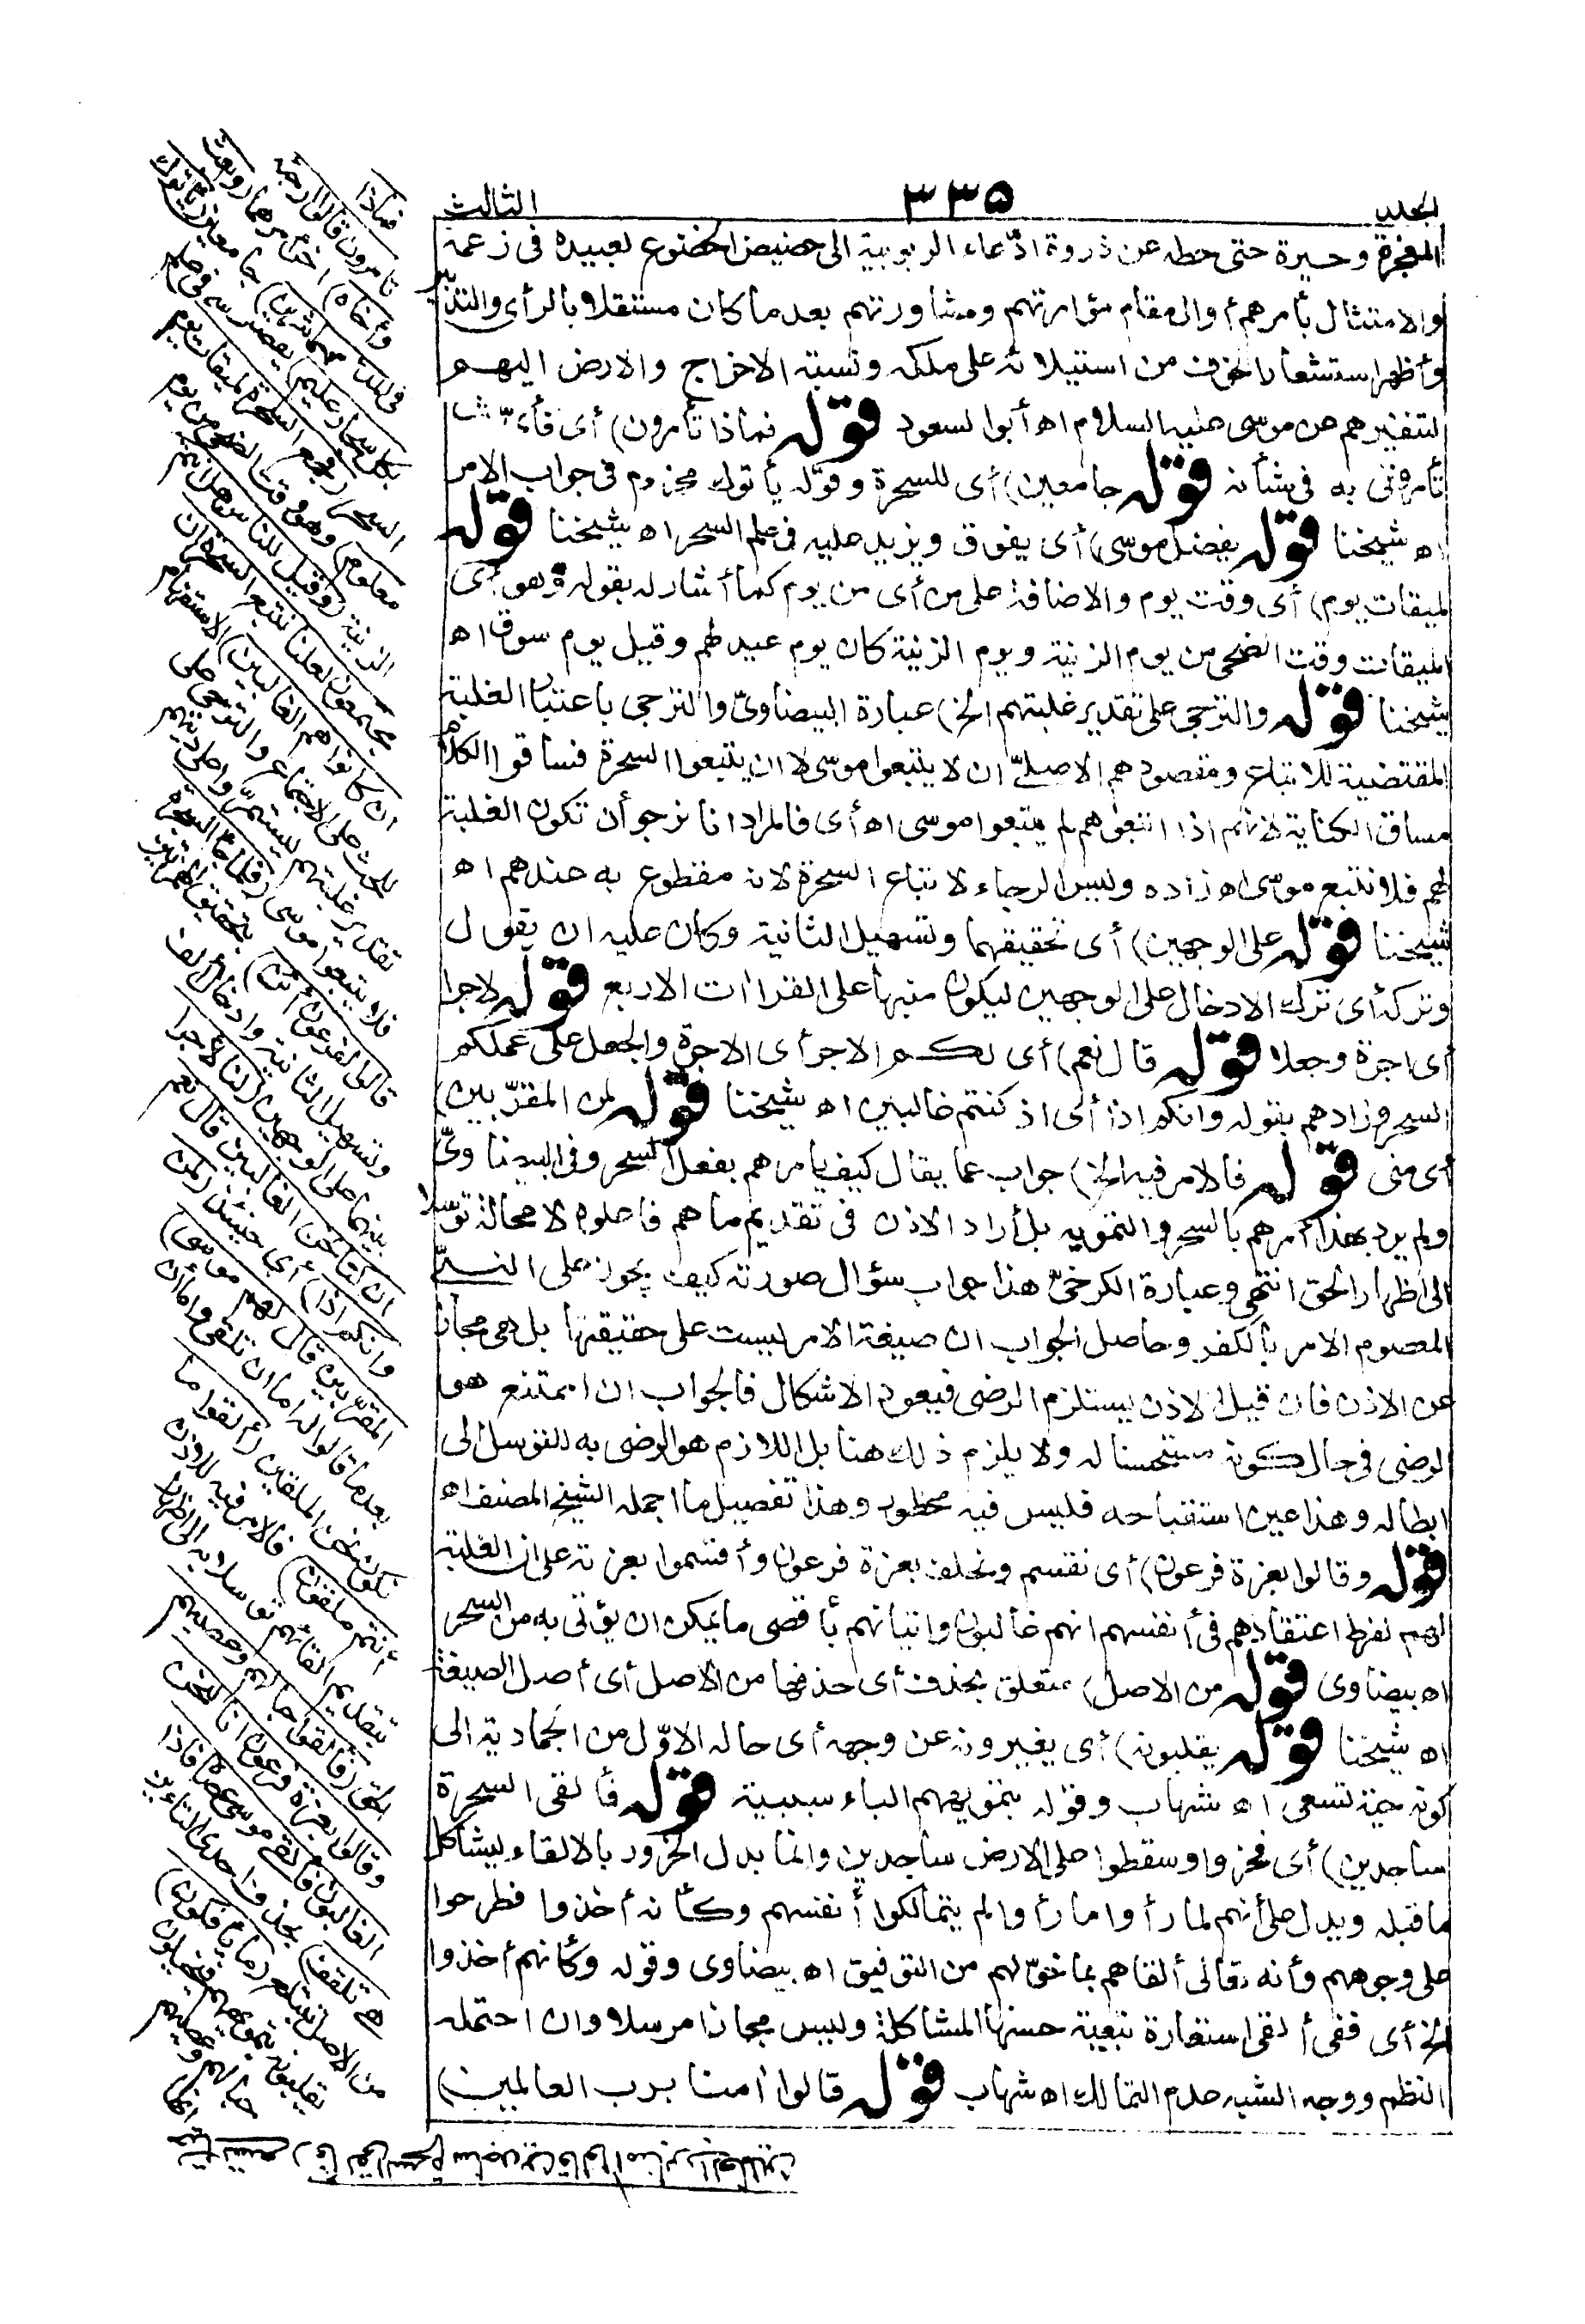 المجلد ٣٣٥ الثالث
المعجزة وحيرة حتى حطه عن ذروة ادّعاء الربوبية الى حضيض الخضوع لعبيده فى زعمه
والامتثال بأمرهم أو الى مقام مؤامرتهم ومشاورتهم بعد ما كان مستقلا بالرأى والتدبير
وأظهر استشعار الخوف من استيلائه على ملكه ونسبة الاخراج والارض اليهم
لتنفيرهم عن موسى عليه السلام اه أبو السعود قوله فماذا تأمرون) أى فأىّ
تأمرونى به فى شأنه قوله جامعين) أى للسحرة وقوله يأتوك مجزوم فى جواب الامر
اه شيخنا قوله يفضل موسى) أى يفوق ويزيد عليه فى علم السحر اه شيخنا قوله
لميقات يوم) أى وقت يوم والاضافة على من أى من يوم كما أشار له بقوله وهو أى
الميقات وقت الضحى من يوم الزينة ويوم الزينة كان يوم عيد لهم وقيل يوم سوق اه
شيخنا قوله والترجى على تقدير غلبتهم الخ) عبارة البيضاوىّ والترجى باعتبار الغلبة
المقتضية للاتباع ومقصودهم الاصلىّ ان لا يتبعوا موسى لا ان يتبعوا السحرة فساقوا الكلام
مساق الكناية لانهم اذا اتبعوهم لم يتبعوا موسى اه أى فالمراد انا نرجو أن تكون الغلبة
لهم فلا نتبع موسى اه زاده وليس الرجاء لاتباع السحرة لانه مقطوع به عندهم اه
شيخنا قوله على الوجهين) أى تحقيقهما وتسهيل الثانية وكان عليه ان يقول
وتركه أى ترك الادخال على الوجهين ليكون منبها على القراات الاربع قوله لاجرا
أى اجرة وجعلا قوله قال نعم) أى لكم الاجر أى الاجرة والجعل على عملكم
السحر وزادهم بقوله وانكم اذا أى اذ كنتم غالبين اه شيخنا قوله لمن المقرّبين)
أى منى قوله فالامر فيه الخ) جواب عما يقال كيف يأمرهم بفعل السحر وفى البيضاوىّ
ولم يرد بهذا أمرهم بالسحر والتمويه بل أراد الاذن فى تقديم ما هم فاعلوه لا محالة توسلا
الى اظهار الحق انتهى وعبارة الكرخىّ هذا جواب سؤال صورته كيف يجوز على النبىّ
المعصوم الامر بالكفر وحاصل الجواب ان صيغة الامر ليست على حقيقتها بل هى مجاز
عن الاذن فان قيل الاذن يستلزم الرضى فيعود الاشكال فالجواب ان الممتنع هو
الرضى فى حال كونه مستحسنا له ولا يلزم ذلك هنا بل اللازم هو الرضى به للتوسل الى
ابطاله وهذا عين استقباحه فليس فيه محظور وهذا تفصيل ما اجمله الشيخ المصنف اه
قوله وقالوا بعزة فرعون) أى نقسم ونحلف بعزة فرعون وأقسموا بعزته على ان الغلبة
لهم لفرط اعتقادهم فى أنفسهم انهم غالبون واتيانهم بأقصى ما يمكن ان يؤتى به من السحر
اه بيضاوى قوله من الاصل) متعلق بحذف أى حذفها من الاصل أى أصل الصيغة
اه شيخنا قوله يقلبونه) أى يغيرونه عن وجهه أى حاله الاوّل من الجمادية الى
كونه حية تسعى اه شهاب وقوله بتمويههم الباء سببية قوله فألقى السحرة
ساجدين) أى فخروا وسقطوا على الارض ساجدين وانما بدل الخرور بالالقاء ليشاكل
ما قبله ويدل على أنهم لما رأوا ما رأوا لم يتمالكوا أنفسهم وكأنه أخذوا فطرحوا
على وجوههم وأنه تعالى ألقاهم بما خوّلهم من التوفيق اه بيضاوى وقوله وكأنهم أخذوا
الخ أى ففى ألقى استعارة تبعية حسنها المشاكلة وليس مجازا مرسلا وان احتمله
النظم ووجه الشبه عدم التمالك اه شهاب قوله قالوا آمنا برب العالمين)
فماذا
تأمرون قالوا أرجئه
وأخاه) أخر أمرهما (وابعث
فى المدائن حاشرين) جامعين (يأتوك
بكل سحار عليم) يفضل موسى فى علم
السحر (فجمع السحرة لميقات يوم
معلوم) وهو وقت الضحى من يوم
الزينة (وقيل للناس هل أنتم
مجتمعون لعلنا نتبع السحرة ان
كانوا هم الغالبين) الاستفهام
للحث على الاجتماع والترجى على
تقدير غلبتهم ليستمرّوا على دينهم
فلا يتبعوا موسى (فلما جاء السحرة
قالوا لفرعون أئن) بتحقيق الهمزتين
وتسهيل الثانية وادخال ألف
بينهما على الوجهين (لنا لأجرا
ان كنا نحن الغالبين قال نعم
وانكم اذا) أى حينئذ (لمن
المقرّبين قال لهم موسى)
بعد ما قالوا له اما ان تلقى واما أن
نكون نحن الملقين (ألقوا ما
أنتم ملقون) فالامر فيه للاذن
بتقديم القائهم توسلا به الى اظهار
الحق (فألقوا حبالهم وعصيهم
وقالوا بعزة فرعون انا لنحن
الغالبون فألقى موسى عصاه فاذا
هى تلقف) بحذف احدى التاءين
من الاصل تبتلع (ما يأفكون)
يقلبونه بتمويههم فيخيلون
حبالهم وعصيهم انها
حيات تسعى (فألقى السحرة ساجدين قالوا آمنا برب العالمين